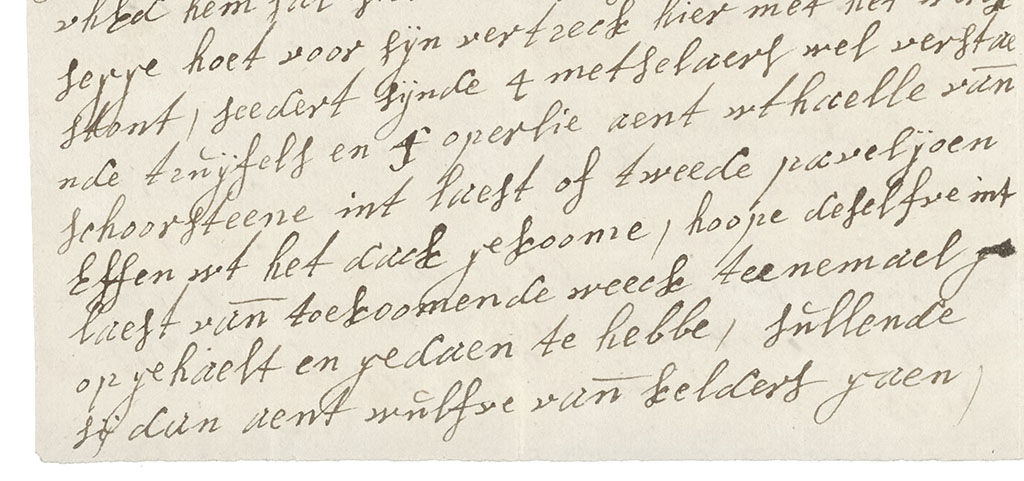 hem sal
seppe hoet voor sÿn vertreck hier met het
stont, seedert sÿnde 4 metselaers wel verstae
nde truÿfels en 4 operlie aent wthaelle van̄
schoorsteene int laest of tweede pavelÿoen
Effen wt het dack gekoome, hoope deselfve int
laest van̄ toekoomende weeck teenemael
opgehaelt en gedaen te hebbe, sullende
sÿ dan aent wulfve van̄ kelders gaen,